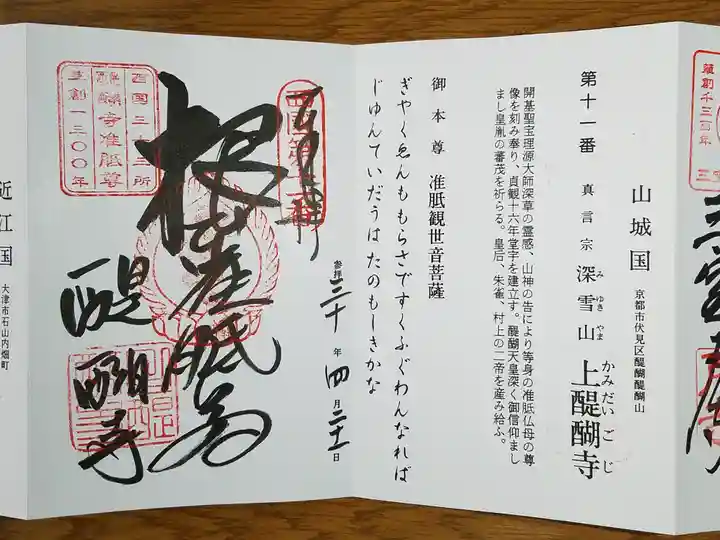 蔵創千三百年
山城国 京都市伏見区醍醐醍醐山
第十一番 真言宗 深雪山 上醍醐寺
みゆきやま かみだいごじ
開基聖宝理源大師深草の霊感、山神の告により等身の准胝仏母の尊
像を刻み奉り、貞観十六年堂宇を建立す。醍醐天皇深く御信仰まし
まし皇胤の蕃茂を祈らる。皇后、朱雀、村上の二帝を産み給ふ。
御本尊 准胝観世音菩薩
ぎやくゑんももらさですくふぐわんなれば
じゆんていだうはたのもしきかな
参拝三十年四月二十一日
西国第十一番
西国三十三所
醍醐寺准胝尊
草創一三〇〇年
醍醐寺
近江国 大津市石山内畑町